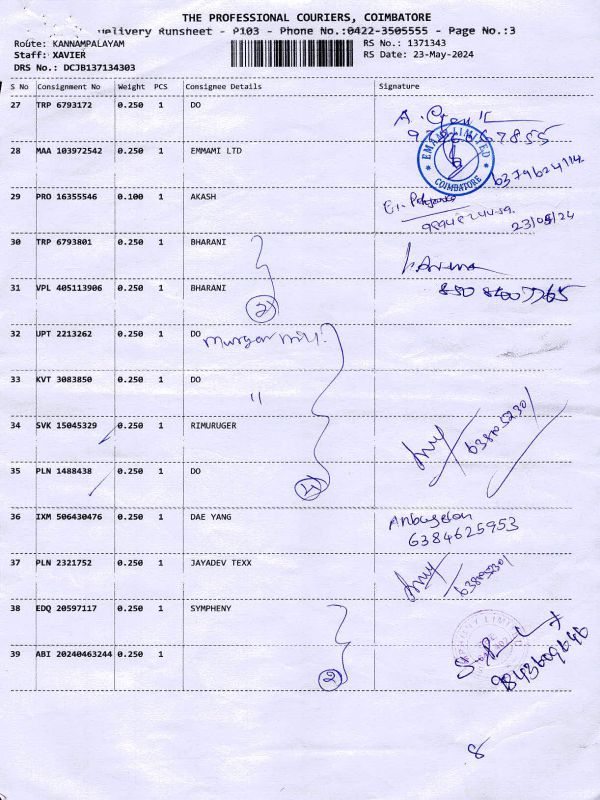 THE PROFESSIONAL COURIERS, COIMBATORE
Delivery Runsheet - P103 - Phone No.:0422-3505555 - Page No.:3
Route: KANNAMPALAYAM
RS No.: 1371343
Staff: XAVIER
RS Date: 23-May-2024
DRS No.: DCJB137134303
S No Consignment No Weight PCS Consignee Details Signature
27 TRP 6793172 0.250 1 DO
28 MAA 103972542 0.250 1 EMMAMI LTD
EMAMI LIMITED
COIMBATORE
6379624114
29 PRO 16355546 0.100 1 AKASH
23/05/24
30 TRP 6793801 0.250 1 BHARANI
31 VPL 405113906 0.250 1 BHARANI
2
32 UPT 2213262 0.250 1 DO
Murugan mill
33 KVT 3083850 0.250 1 DO
"
34 SVK 15045329 0.250 1 RIMURUGER
35 PLN 1488438 0.250 1 DO
4
36 IXM 506430476 0.250 1 DAE YANG
6384625953
37 PLN 2321752 0.250 1 JAYADEV TEXX
38 EDQ 20597117 0.250 1 SYMPHENY
39 ABI 20240463244 0.250 1
2
9843609646
8